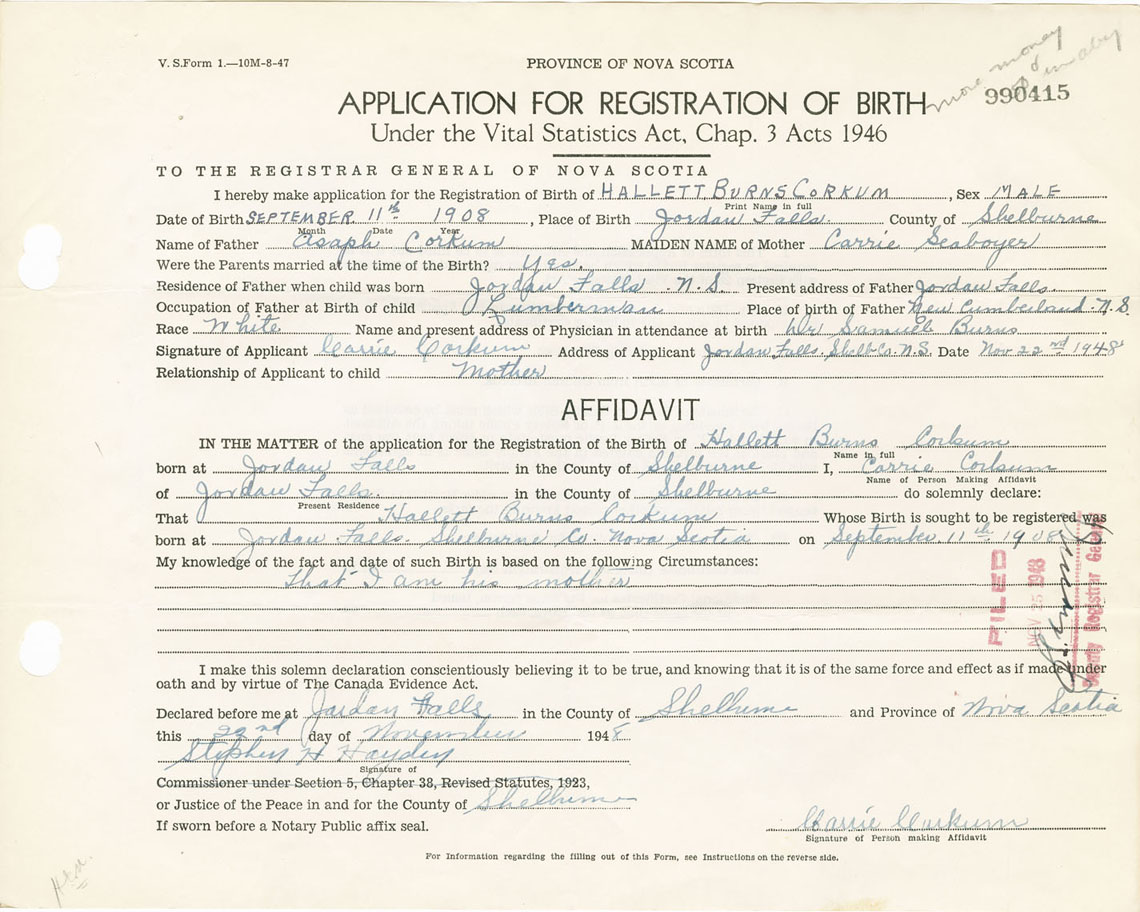 V. S.Form 1.—10M-8-47
PROVINCE OF NOVA SCOTIA
more money
990415
APPLICATION FOR REGISTRATION OF BIRTH
Under the Vital Statistics Act, Chap. 3 Acts 1946
TO THE REGISTRAR GENERAL OF NOVA SCOTIA
I hereby make application for the Registration of Birth of HALLETT BURNS CORKUM, Sex MALE
Print Name in full
Date of Birth SEPTEMBER 11th 1908, Place of Birth Jordan Falls. County of Shelburne
Month Date Year
Name of Father Asaph Corkum MAIDEN NAME of Mother Carrie Seaboyer
Were the Parents married at the time of the Birth? Yes.
Residence of Father when child was born Jordan Falls N.S. Present address of Father Jordan Falls.
Occupation of Father at Birth of child Lumberman Place of birth of Father New Cumberland N.S.
Race White Name and present address of Physician in attendance at birth Dr Samuel Burns
Signature of Applicant Carrie Corkum Address of Applicant Jordan Falls. Shelb. Co. N.S. Date Nov 22nd 1948
Relationship of Applicant to child Mother
AFFIDAVIT
IN THE MATTER of the application for the Registration of the Birth of Hallett Burns Corkum
Name in full
born at Jordan Falls in the County of Shelburne I, Carrie Corkum
Name of Person Making Affidavit
of Jordan Falls. in the County of Shelburne do solemnly declare:
Present Residence
That Hallett Burns Corkum Whose Birth is sought to be registered was
born at Jordan Falls. Shelburne Co. Nova Scotia on September 11th 1908
My knowledge of the fact and date of such Birth is based on the following Circumstances:
That I am his mother
FILED
NOV 25 1948
Deputy Registrar General
I make this solemn declaration conscientiously believing it to be true, and knowing that it is of the same force and effect as if made under
oath and by virtue of The Canada Evidence Act.
Declared before me at Jordan Falls in the County of Shelburne and Province of Nova Scotia
this 22nd day of November 1948
Stephen H Hayden
Signature of
Commissioner under Section 5, Chapter 38, Revised Statutes, 1923,
or Justice of the Peace in and for the County of Shelburne
If sworn before a Notary Public affix seal.
Carrie Corkum
Signature of Person making Affidavit
For Information regarding the filling out of this Form, see Instructions on the reverse side.